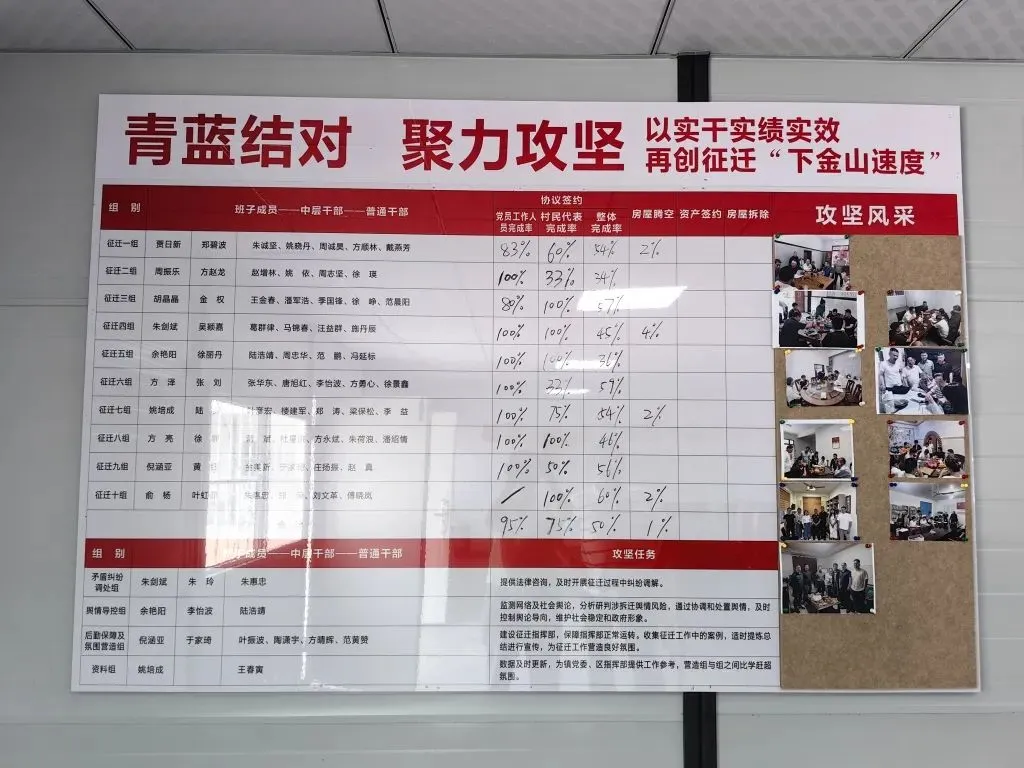 青蓝结对 聚力攻坚 以实干实绩实效
再创征迁“下金山速度”
组 别 班子成员——中层干部——普通干部 协议签约 房屋腾空 资产签约 房屋拆除 攻坚风采
党员工作人员完成率 村民代表完成率 整体完成率
征迁一组 贾日新 郑碧波 朱诚坚、姚晓丹、周诚昊、方顺林、戴燕芳 83% 60% 54% 2%
征迁二组 周振乐 方赵龙 赵增林、姚 依、周志坚、徐 瑛 100% 33% 34%
征迁三组 胡晶晶 金 权 王金春、潘军浩、季国锋、徐 峥、范晨阳 80% 100% 57%
征迁四组 朱剑斌 吴颖嘉 葛群律、马锦春、汪益群、施丹辰 100% 100% 45% 4%
征迁五组 余艳阳 徐丽丹 陆浩靖、周忠华、范 鹏、冯延标 100% 100% 36%
征迁六组 方 泽 张 刘 张华东、唐旭红、李怡波、方勇心、徐景鑫 100% 33% 59%
征迁七组 姚培成 陆 楼建军、郑 涛、梁保松、李 益 100% 75% 54% 2%
征迁八组 方 亮 徐 斌、方永斌、朱荷浪、潘绍情 100% 100% 46%
征迁九组 倪涵亚 黄 汪扬振、赵 真 100% 50% 56%
征迁十组 俞 杨 叶虹 朱惠忠、刘文革、傅晓岚 / 100% 60% 2%
95% 75% 50% 1%
组 别 成员——中层干部——普通干部 攻坚任务
矛盾纠纷调处组 朱剑斌 朱 玲 朱惠忠 提供法律咨询，及时开展征迁过程中纠纷调解。
舆情导控组 余艳阳 李怡波 陆浩靖 监测网络及社会舆论，分析研判涉拆迁舆情风险，通过协调和处置舆情，及时
控制舆论导向，维护社会稳定和政府形象。
后勤保障及氛围营造组 倪涵亚 于家琦 叶振波、陶潇宇、方晴辉、范黄赞 建设征迁指挥部，保障指挥部正常运转。收集征迁工作中的案例，适时提炼总
结进行宣传，为征迁工作营造良好氛围。
资料组 姚培成 王春寅 数据及时更新，为镇党委、区指挥部提供工作参考，营造组与组之间比学赶超
氛围。